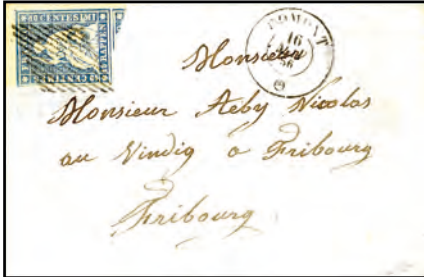 10 CENTESIMI
RAPPEN
ROMONT
16
56
Monsieur
Monsieur Aeby Nicolas
au Vindig a Fribourg
Fribourg